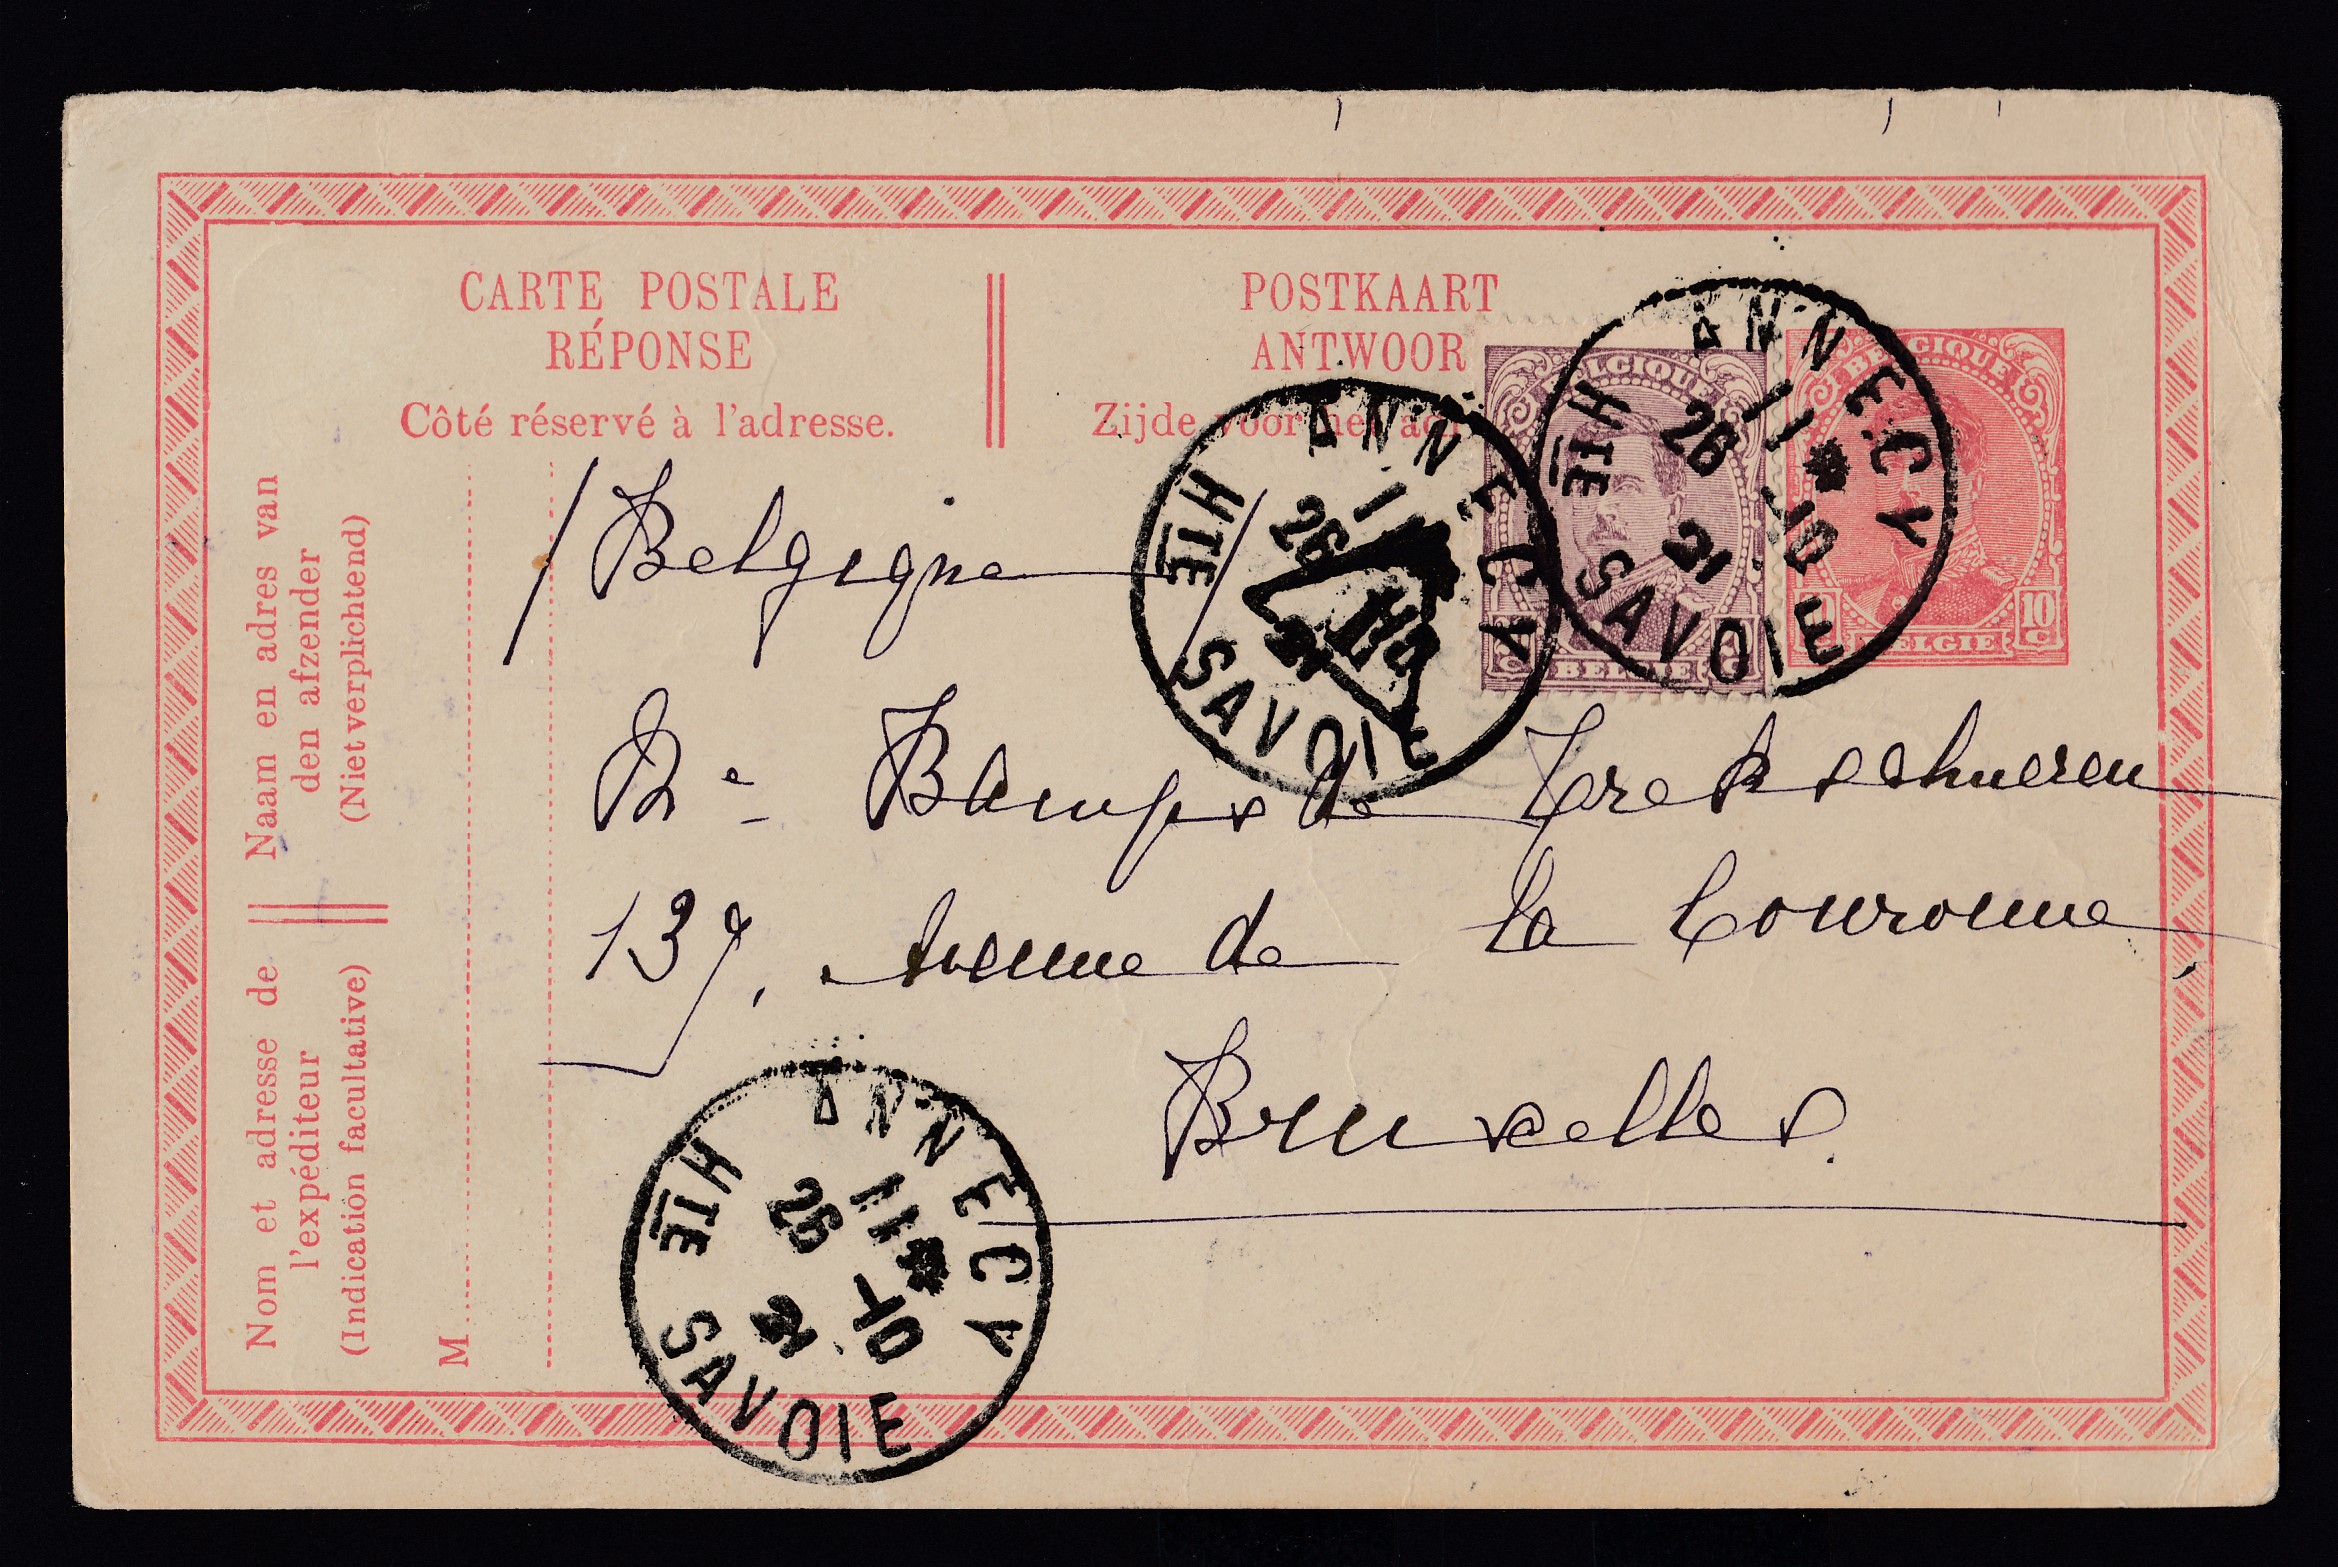 CARTE POSTALE
RÉPONSE
Côté réservé à l'adresse.
POSTKAART
ANTWOOR
Zijde voor het
BELGIQUE
BELGIE
BELGIQUE
10 C
BELGIE
ANNECY
11 *
26 -10
21
HTE SAVOIE
ANNECY
26
HTE SAVOIE
Naam en adres van
den afzender
(Niet verplichtend)
Nom et adresse de
l'expéditeur
(Indication facultative)
M
/Belgique/
Bamps de
139, Avenue de la Couronne
Bruxelles.
ANNECY
11 *
26 -10
21
HTE SAVOIE